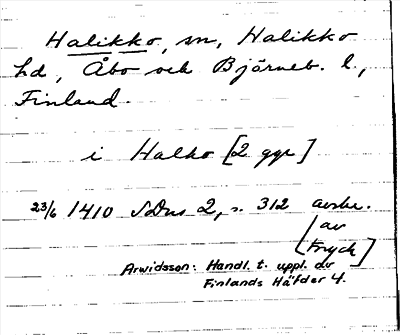 Halikko, sn, Halikko
hd, Åbo och Björneb. l.,
Finland.
i Halko [2 ggr]
23/6 1410 SDns 2, s. 312 avskr.
[av
tryck]
Arwidsson: Handl. t. uppl. av
Finlands Häfder 4.